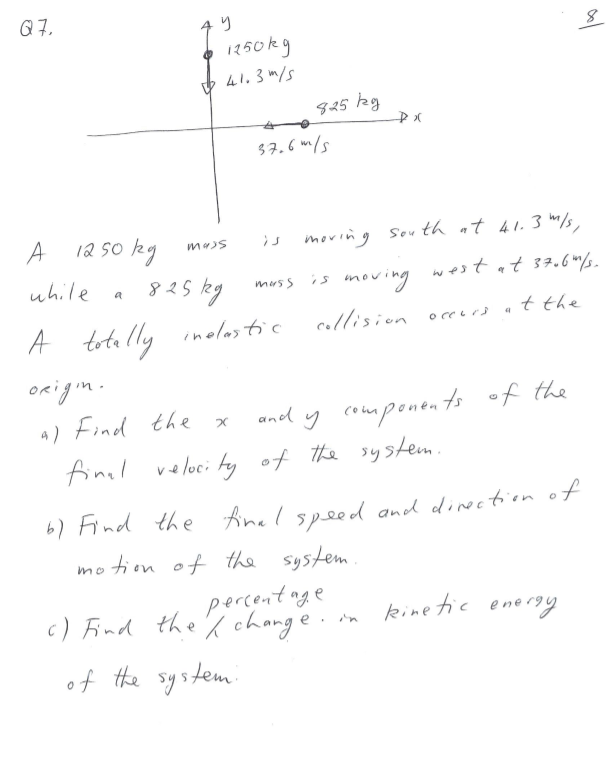 Q7.
8
y
1250 kg
41.3 m/s
825 kg
x
37.6 m/s
A 1250 kg mass is moving South at 41.3 m/s,
while a 825 kg mass is moving west at 37.6 m/s.
A totally inelastic collision occurs at the
origin.
a) Find the x and y components of the
final velocity of the system.
b) Find the final speed and direction of
motion of the system.
percentage
c) Find the ⁁ change. in kinetic energy
of the system.